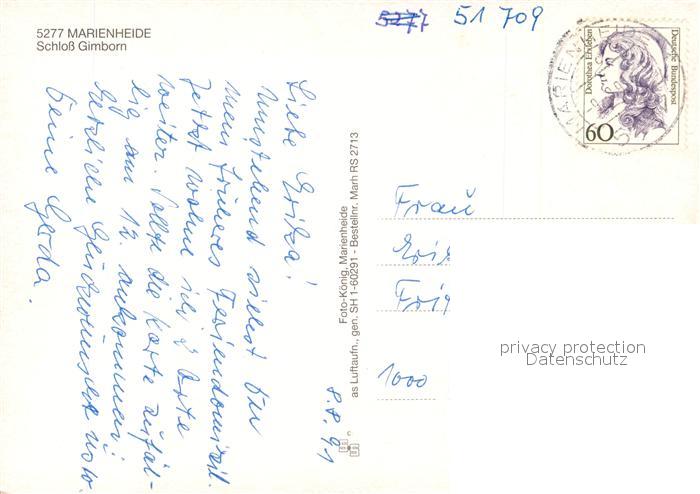 5277 MARIENHEIDE
Schloß Gimborn
5277 51 709
Liebe Erika!
Umstehend siehst Du
mein früheres Feriendomizil.
Jetzt wohne ich 2 Orte
weiter. Sollte die Karte zufäl-
lig am 12. ankommen:
Herzlichen Glückwunsch
Deine Gerda.
8.8.91
Foto-König, Marienheide
as Luftaufn., gen. SH 1-60291 - Bestellnr. Marh RS 2713
Dorothea Erxleben
Deutsche Bundespost
60
MARIENHEIDE
Frau
Eri
Fri
1000
privacy protection
Datenschutz